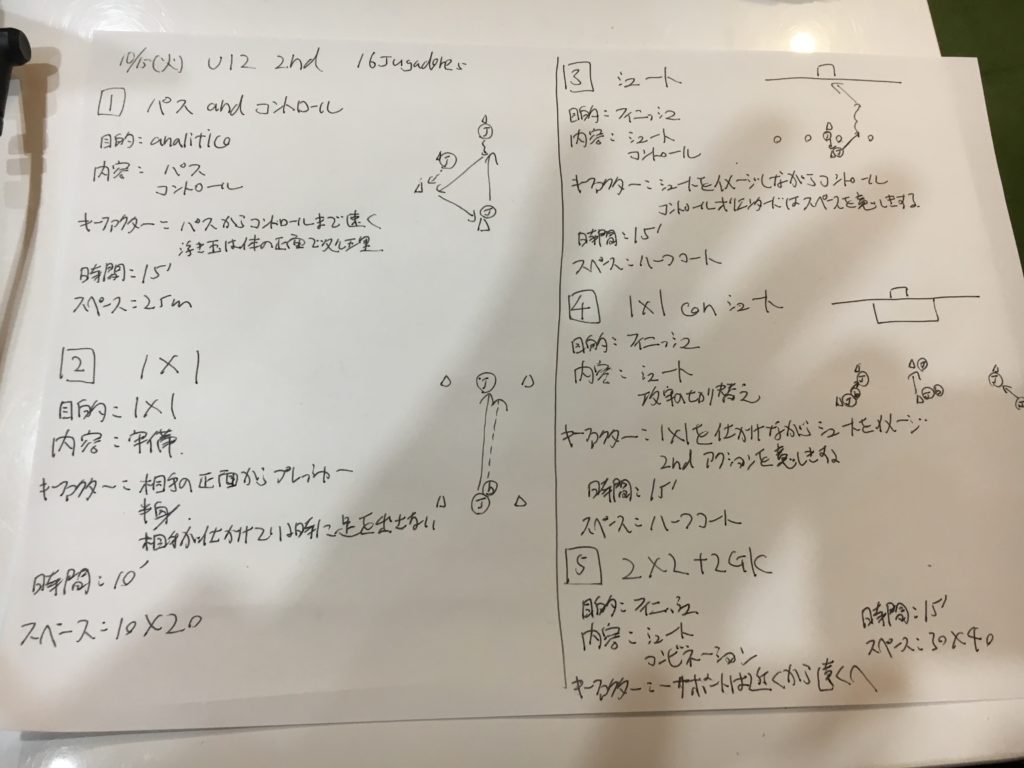 10/15(火) U12 2nd 16Jugadores
1 パス and コントロール
目的: analitico
内容: パス
コントロール
キーファクター: パスからコントロールまで速く
浮き玉は体の正面で処理
時間: 15'
スペース: 25m
2 1×1
目的: 1×1
内容: 守備.
キーファクター: 相手の正面からプレッシャー
半身
相手が仕かけている時に足を出せない
時間: 10'
スペース: 10×20
3 シュート
目的: フィニッシュ
内容: シュート
コントロール
キーファクター: シュートをイメージしながらコントロール
コントロールオリエンタードはスペースを意しきする
時間: 15'
スペース: ハーフコート
4 1×1 con シュート
目的: フィニッシュ
内容: シュート
攻守の切り替え
キーファクター: 1×1を仕かけながらシュートをイメージ
2nd アクションを意しきする
時間: 15'
スペース: ハーフコート
5 2×2+2GK
目的: フィニッシュ
内容: シュート
コンビネーション
キーファクター: サポートは近くから遠くへ
時間: 15'
スペース: 30×40